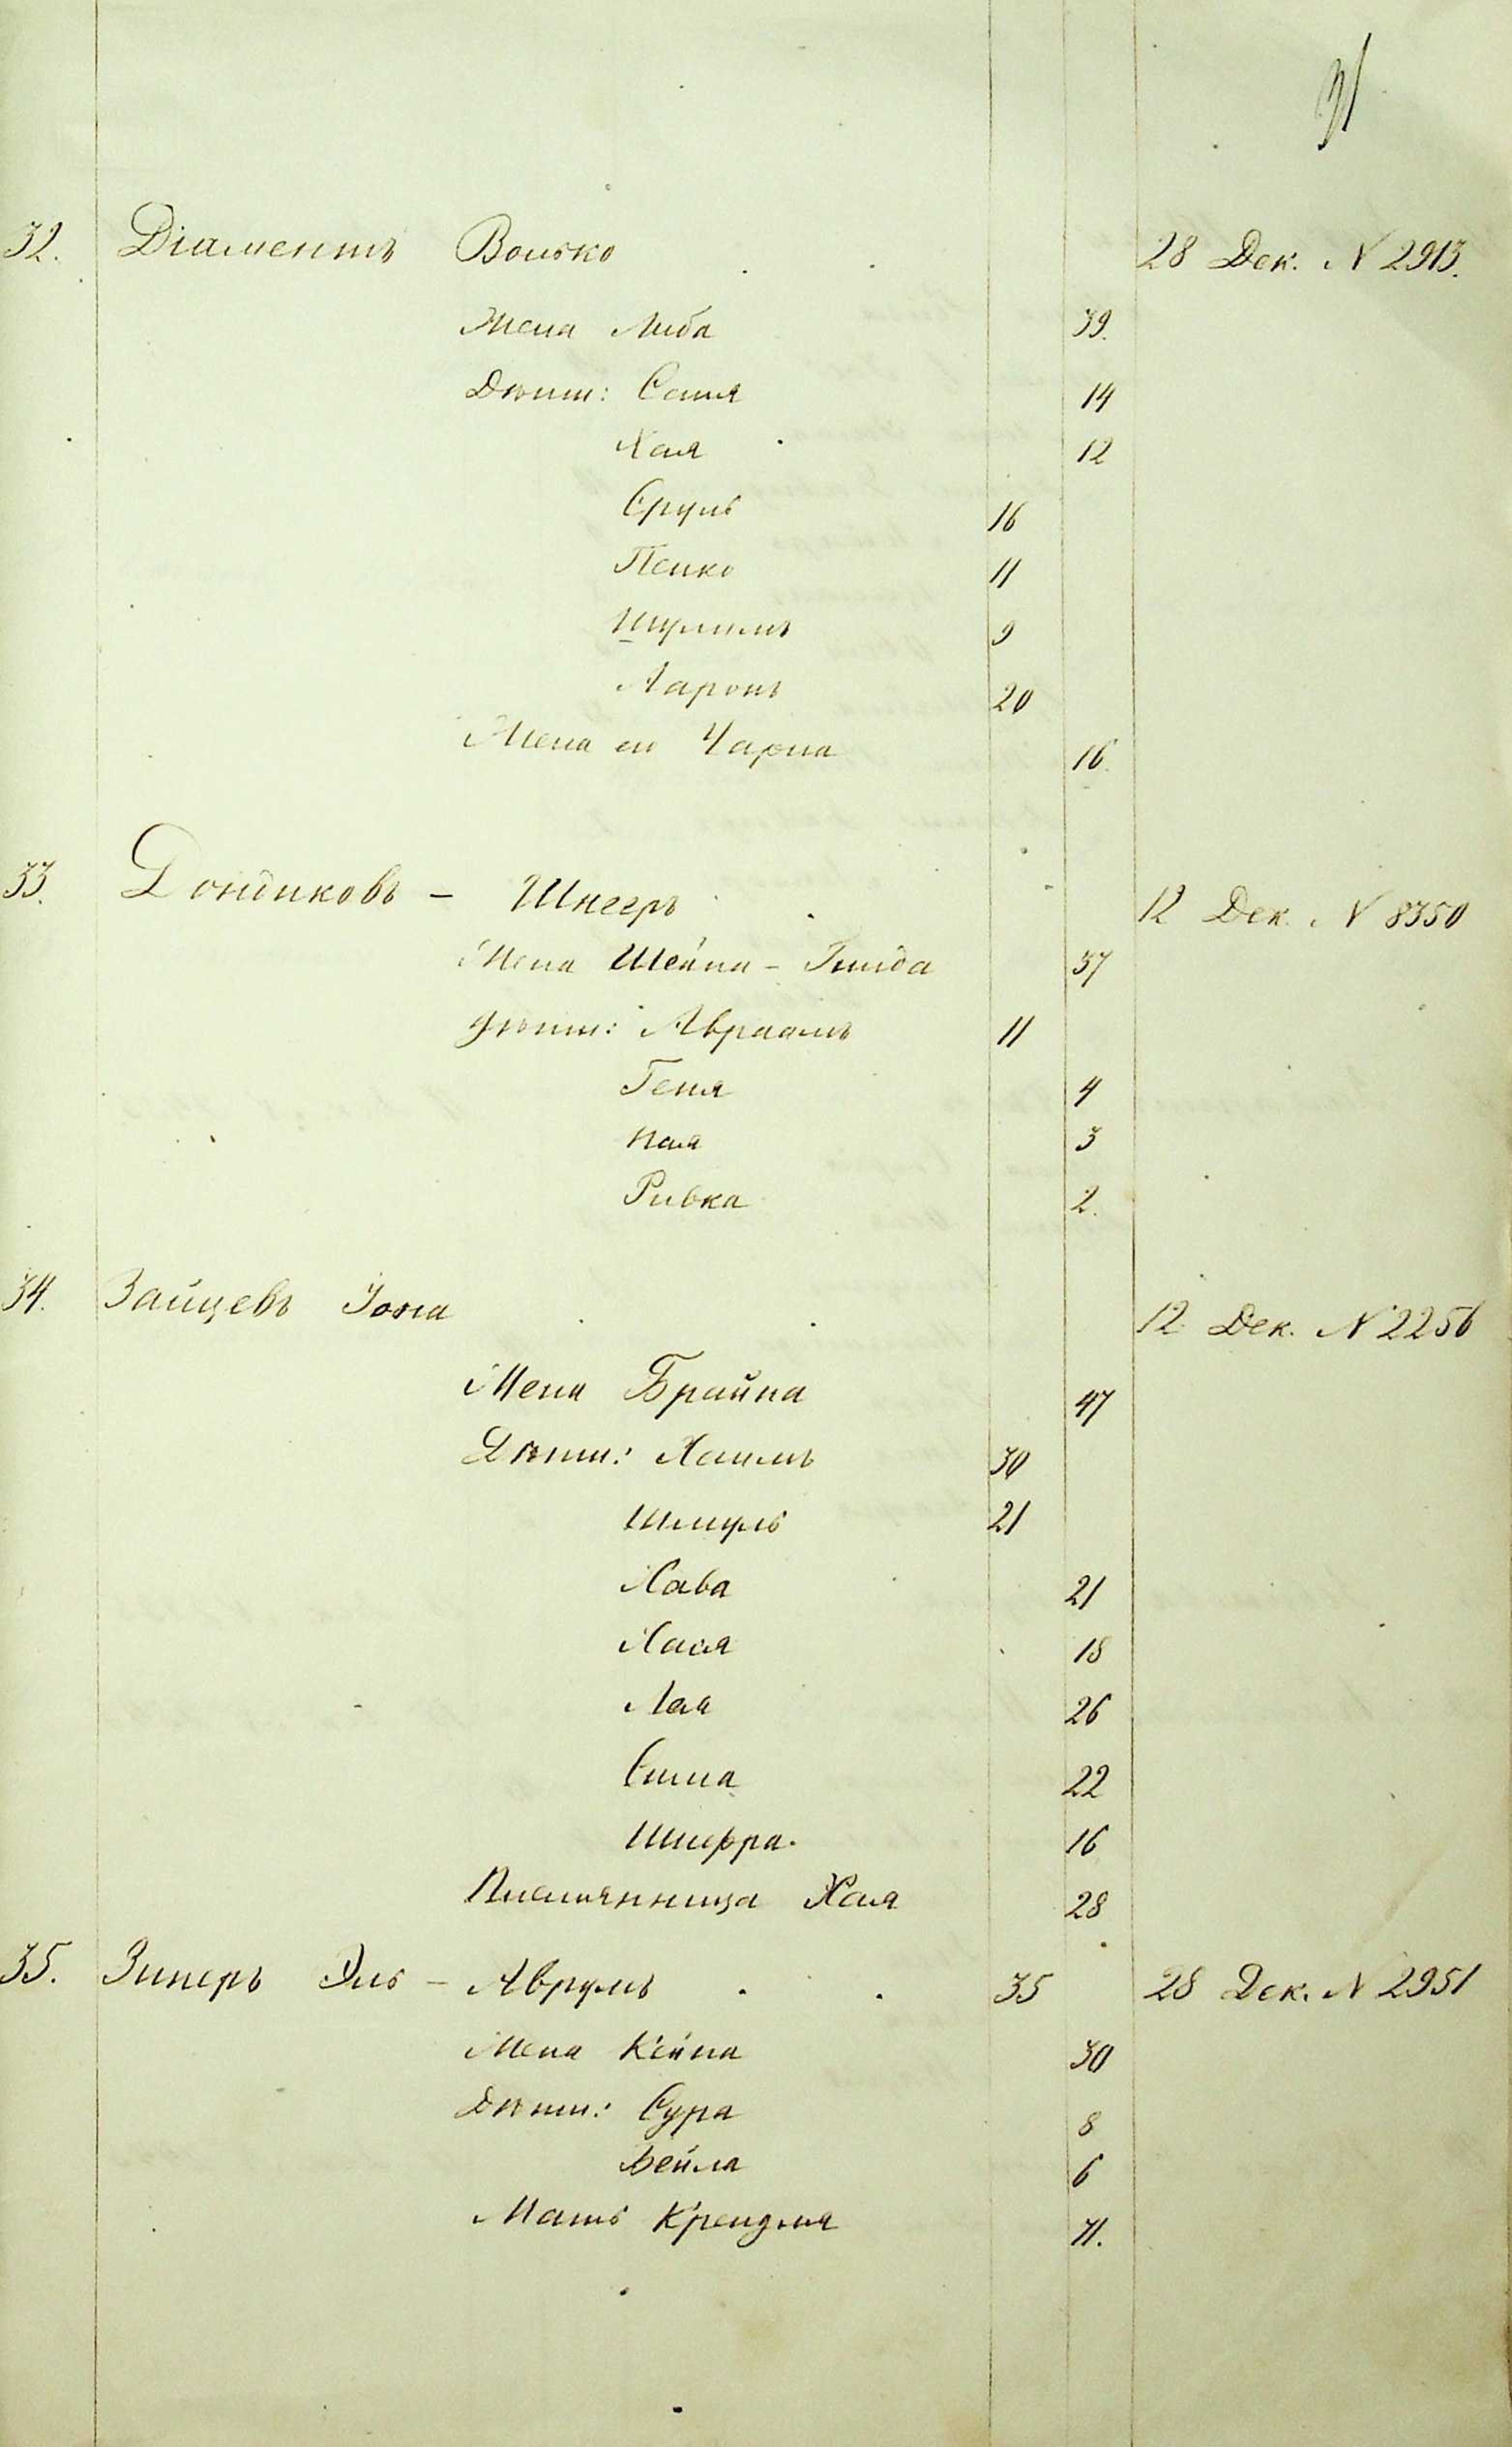 31
32. Діаментъ Волько 28 Дек. N 2913.
Жена Либа 39.
Дѣти: Сося 14
Хая 12
Сруль 16
Пейко 11
Шулимъ 9
Ааронъ 20
Жена ею Чарна 16.
33. Дондиковъ - Шнееръ 12 Дек. N 8350
Жена Шейна - Гинда 37
Дѣти: Авраамъ 11
Геня 4
Хая 3
Ривка 2.
34. Зайцевъ Іона 12 Дек. N 2256
Жена Брайна 47
Дѣти: Хаимъ 30
Шмуль 21
Хава 21
Хася 18
Лая 26
Сима 22
Шифра. 16
Племянница Хая 28
35. Зиперъ Эль - Аврумъ 35 28 Дек. N 2951
Жена Кейна 30
Дѣти: Сура 8
Бейла 6
Мать Крендля 71.